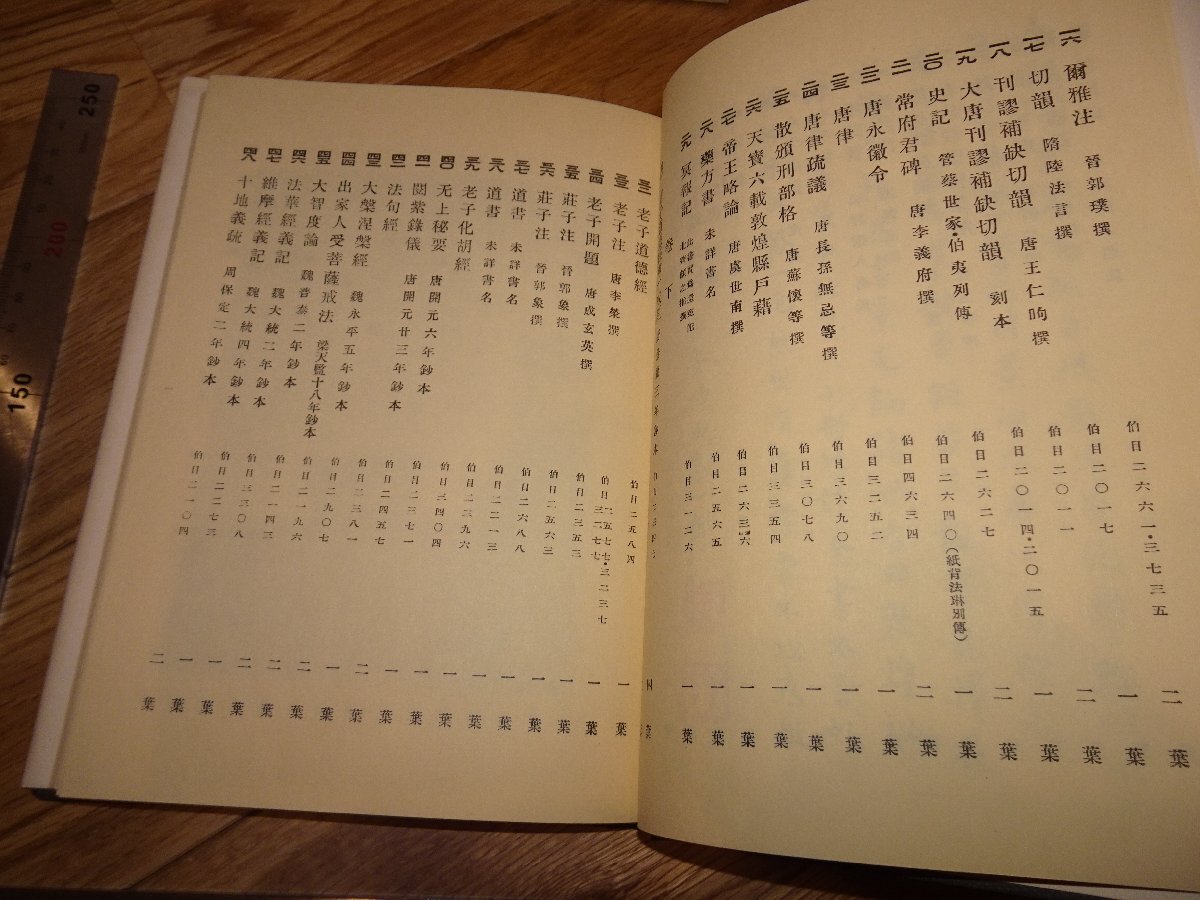 一六 爾雅注 晉郭璞撰 伯目二六六一·三七三五 二葉
一七 切韻 隋陸法言撰 伯目二〇一七 一葉
一八 刊謬補缺切韻 唐王仁昫撰 伯目二〇一一 二葉
一九 大唐刊謬補缺切韻 刻本 伯目二〇一四·二〇一五 一葉
二〇 史記 管蔡世家·伯夷列傳 伯目二六二七 二葉
二一 常府君碑 唐李義府撰 伯目二六四〇(紙背法琳別傳) 一葉
二二 唐永徽令 伯目四六三四 二葉
二三 唐律 伯目三二五二 一葉
二四 唐律疏議 唐長孫無忌等撰 伯目三六九〇 一葉
二五 散頒刑部格 唐蘇懷等撰 伯目三〇七八 一葉
二六 天寶六載敦煌縣戶籍 伯目三三五四 一葉
二七 帝王略論 唐虞世南撰 伯目二六三六 一葉
二八 藥方書 未詳書名 伯目二五六五 一葉
二九 冥報記 伯目三一二六 一葉
卷下
老子道德經 伯目二五八四
老子注 唐李榮撰 伯目二五七七·三二三七 三二七七 一葉
三四 老子開題 唐成玄英撰 伯目二三五三 一葉
三五 莊子注 晉郭象撰 伯目二五六三 一葉
三六 莊子注 晉郭象撰 伯目二六八八 一葉
三七 道書 未詳書名 伯目二二一三 一葉
三八 道書 未詳書名 伯目二三九六 一葉
三九 老子化胡經 伯目三四〇四 一葉
四〇 无上秘要 唐開元六年鈔本 伯目二三七一 一葉
四一 閱紫錄儀 唐開元廿三年鈔本 伯目二四五七 一葉
四二 法句經 伯目二三八一 二葉
四三 大槃涅槃經 魏永平五年鈔本 伯目二九〇七 一葉
四四 出家人受菩薩戒法 梁天監十八年鈔本 伯目二一九六 二葉
四五 大智度論 魏普泰二年鈔本 伯目二一四三 二葉
四六 法華經義記 魏大統二年鈔本 伯目三三〇八 二葉
四七 維摩經義記 魏大統四年鈔本 伯目二二七三 一葉
四八 十地義疏 周保定二年鈔本 伯目二一〇四 一葉
二葉
250
200
150